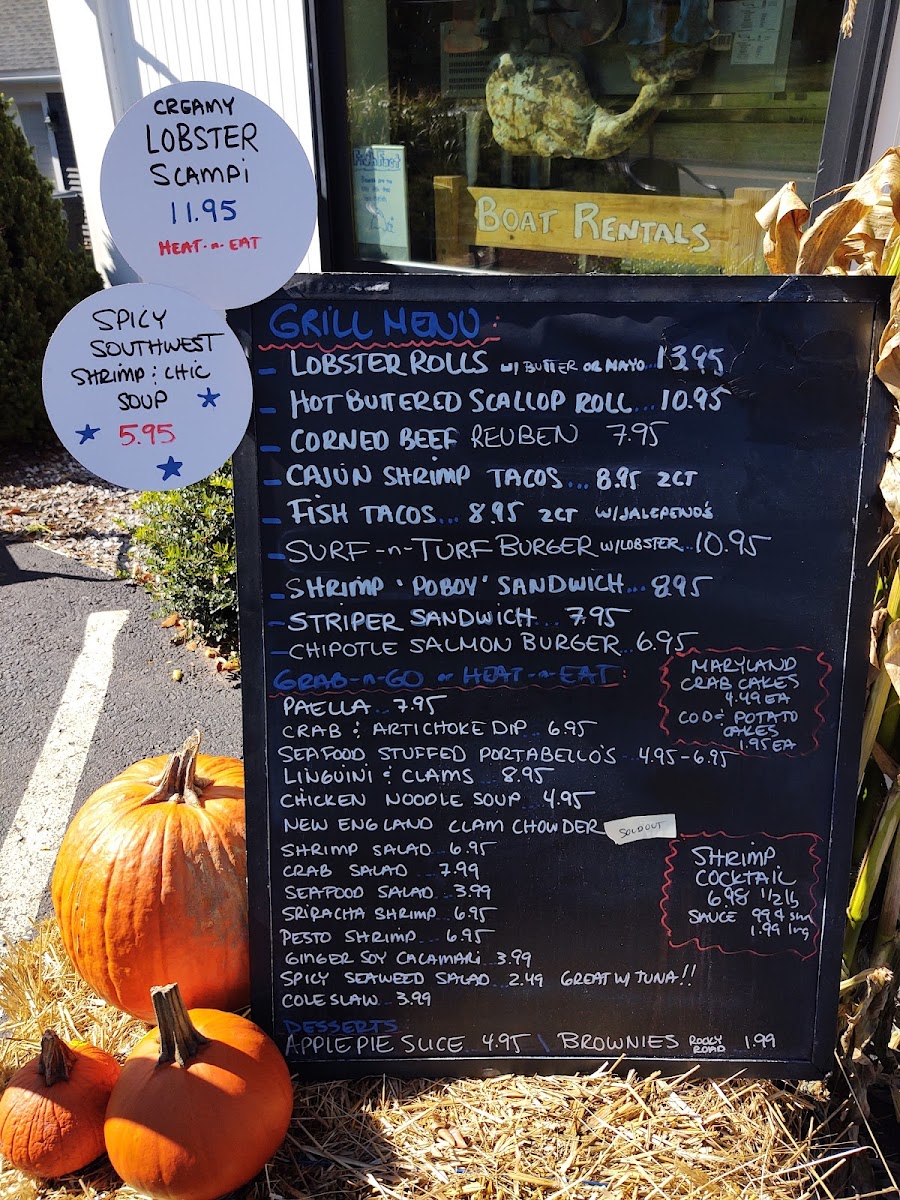 CREAMY
LOBSTER
SCAMPi
11.95
HEAT-n-EAT
SPICY
SOUTHWEST
SHRIMP & CHIC
SOUP
5.95
BOAT RENTALS
GRILL MENU:
- LOBSTER ROLLS w/ BUTTER OR MAYO...13.95
- HOT BUTTERED SCALLOP ROLL...10.95
- CORNED BEEF REUBEN 7.95
- CAJUN SHRIMP TACOS...8.95 2CT
- FISH TACOS...8.95 2CT W/JALEPENO'S
- SURF-n-TURF BURGER W/LOBSTER...10.95
- SHRIMP 'POBOY' SANDWICH...8.95
- STRIPER SANDWICH...7.95
- CHIPOTLE SALMON BURGER 6.95
GRAB-n-GO or HEAT-n-EAT:
MARYLAND
CRAB CAKES
4.49 EA
COD & POTATO
CAKES
1.95 EA
PAELLA...7.95
CRAB & ARTICHOKE DIP...6.95
SEAFOOD STUFFED PORTABELLO'S...4.95-6.95
LINGUINI & CLAMS...8.95
CHICKEN NOODLE SOUP...4.95
NEW ENGLAND CLAM CHOWDER SOLD OUT
SHRIMP SALAD...6.95
CRAB SALAD...7.99
SEAFOOD SALAD...3.99
SRIRACHA SHRIMP...6.95
PESTO SHRIMP...6.95
GINGER SOY CALAMARI...3.99
SPICY SEAWEED SALAD...2.49 GREAT W/ TUNA!!
COLESLAW...3.99
SHRIMP
COCKTAIL
6.98 1/2 lb
SAUCE 99¢ sm
1.99 lrg
DESSERTS
APPLE PIE SLICE 4.95 \ BROWNIES ROCKY ROAD 1.99